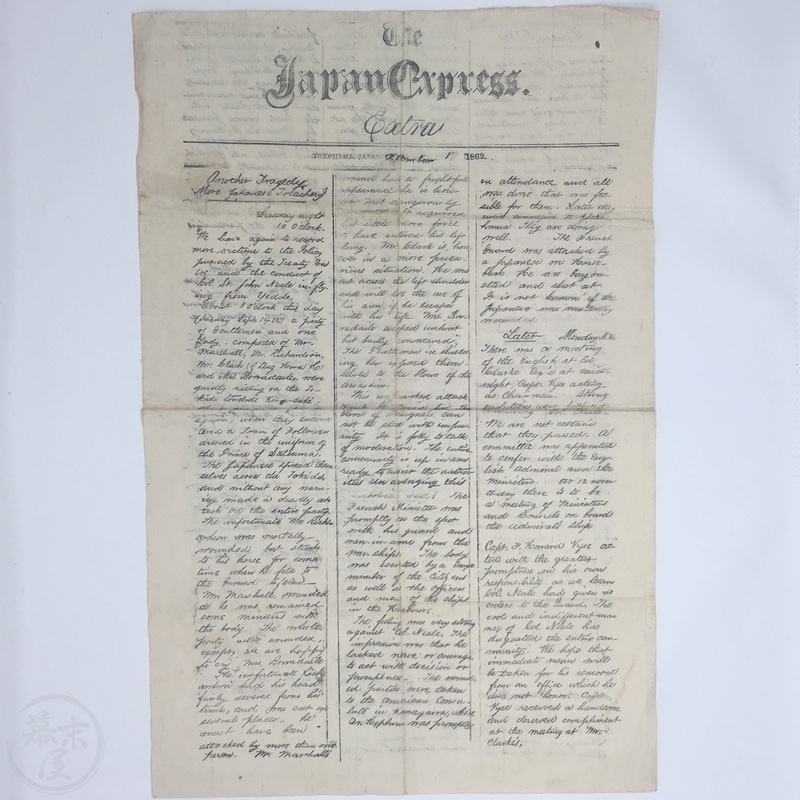 The
Japan Express.
Extra
YOKOHAMA, JAPAN, 1862.
Another Tragedy
More Japanese Treachery!
Sunday night
10 O'Clock.
We have again to record
more victims to the Policy
pursued by the Treaty Pow
ers and the conduct of
Col St. John Neale in fly
ing from Yeddo.
About 3 O'Clock this day
(Sunday Sept 14th) a party
of Gentlemen and one
Lady. composed of Mr.
Marshall, Mr. Richardson,
Mr. Clark (of Aug Heard & Co)
and Mrs Borradaile, were
quietly riding on the To-
kido towards
again, when they encoun
tered a Train of Followers
dressed in the uniform of
the Prince of Satsuma.
The Japanese spread them
selves across the Tokido
and without any warn
ing made a deadly at
tack on the entire party.
The unfortunate Mr Rich
ardson was mortally
wounded but stuck
to his horse for some
time when he fell to
the Ground
Mr. Marshall, wounded
as he was, remained
some minutes with
the body. The whole
party were wounded,
except, we are happy
to say Mrs. Borradaile
The unfortunate Rich
ardson had his head
nearly severed from his
trunk, and was cut in
several places - he
must have been
attacked by more than one
person. Mr. Marshall's
a frightful
appearance he is how-
ever not dangerously
required
but little more force
to have entered his left
lung. Mr Clark is, how
ever in a more preca-
rious situation. He was
cut across the left shoulder
and will lose the use of
his arm, if he escapes
with his life. Mrs Bor-
radaile escaped unhurt
but badly
The Gentlemen in shield
ing her exposed them
selves to the blows of the
assassins.
This unprovoked attack
can
not be shed with impu
nity. It is folly to talk
of moderation. The entire
community is up in arms
ready to assist the author
ities in avenging this
The
French Minister was
promptly on the spot
with his guard and
men-in-arms from the
man-ships. The body
was escorted by a large
number of the Citizens
as well as the officers
and men of the ships
in the Harbour.
The feeling was very strong
against Col. Neale. The
impression was that he
lacked nerve or courage
to act with decision or
promptness. The wound
ed parties were taken
to the American Consu-
late in Kanagawa, where
Dr. Hepburn was promptly
in attendance and all
was done that was pos
sible for them. Later they
hama They are doing
well. The French
Guard was attacked by
a Japanese on Horse-
back He was bayon-
etted and shot at
It is not known if the
Japanese was mortally
wounded
Later Monday
There was a meeting
of the English at
Clarke Esq at mid-
night, Capt. Vyse acting
as Chairman. Strong
resolutions were
We are not certain
that they passed. A
committee was appointed
to confer with the Eng
lish Admiral and the
Ministers. At 12 noon
to-day there is to be
a meeting of Ministers
and Consuls on board
the Admiral's Ship
Capt. F. Howard Vyse ac-
ted with the greatest
promptness, on his own
responsibility as we learn
Col. Neale had given no
orders to the Guard. The
cool and indifferent man
ner of Col Neale has
disgusted the entire com-
munity. We hope that
immediate means will
be taken for his removal
from an office which he
does not honor. Capt
Vyse received a handsome
and deserved compliment
at the meeting at Mr.
Clarke's,
幕末屋